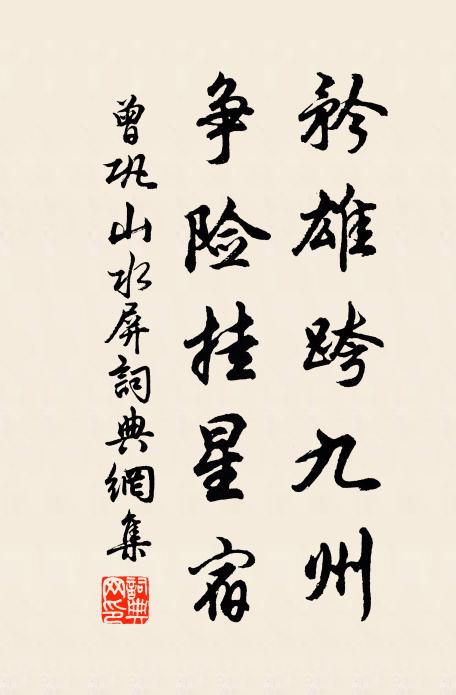 矜雄跨九州
争险挂星宿
曾巩山水屏詞典網集
詞典网印